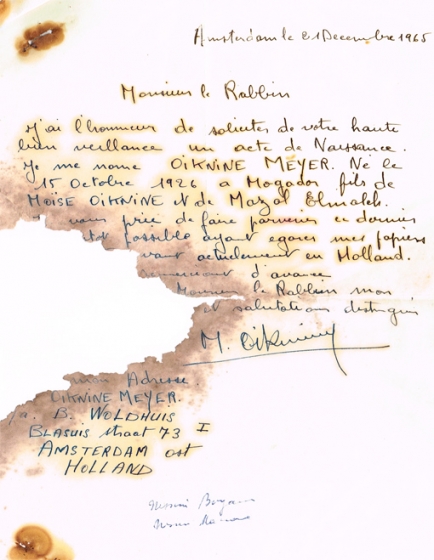 Amsterdam le 21 Decembre 1965
Monsieur le Rabbin
J'ai l'honneur de soliciter de votre haute
bien veillance un acte de Naissance.
Je me nome OIKNINE MEYER. Né le
15 Octobre 1926 a Mogador fils de
MOÏSE OIKNINE et de Mazal Elmaleh.
vous prie de faire parvenir ce dernier
tot possible ayant egarer mes papiers
vant actuelement en Holland.
d'avance
Monsieur le Rabbin mon
et salutations distingué
M. Oiknine
mon Adresse.
OIKNINE MEYER.
B. WOLDHUIS
BLASUIS straat 73 I
AMSTERDAM ost
HOLLAND